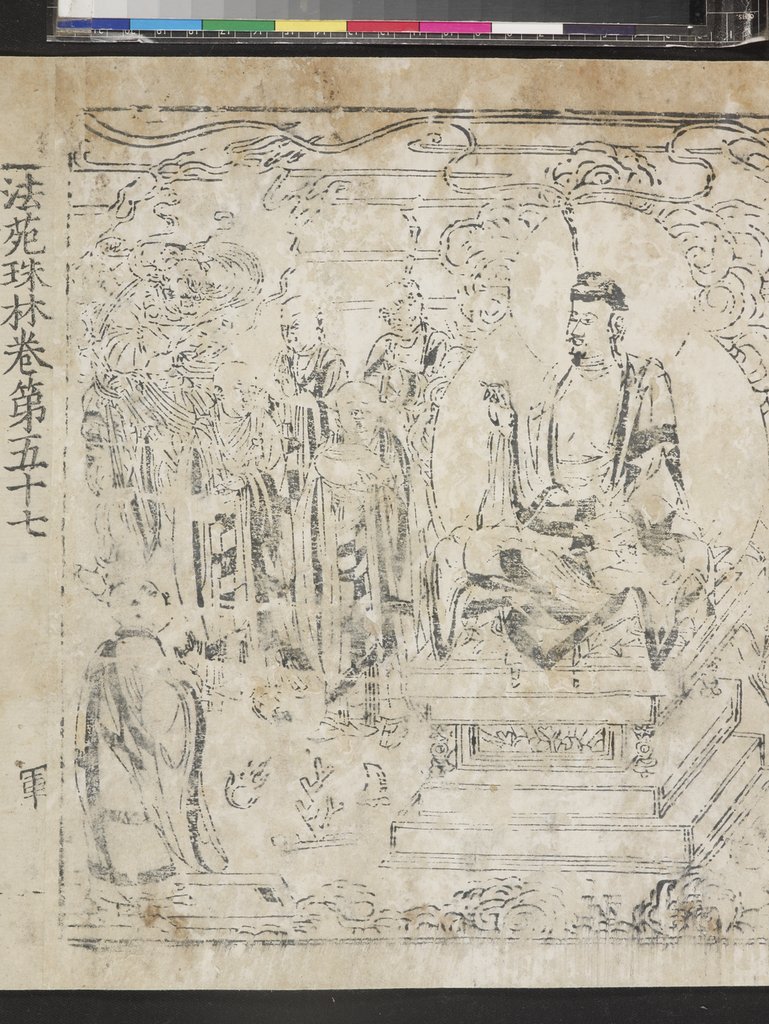 法苑珠林卷第五十七
軍